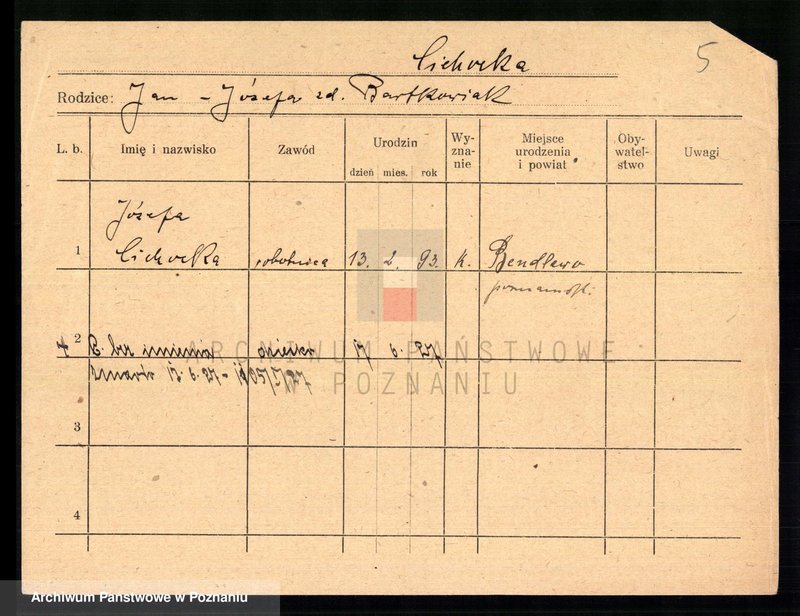 Cichocka
5
Rodzice: Jan - Józefa zd. Bartkowiak
L. b. Imię i nazwisko Zawód Urodzin Wy-zna-nie Miejsce urodzenia i powiat Oby-watel-stwo Uwagi
dzień mies. rok
Józefa
1 Cichocka robotnica 13. 2. 93. k. Bendlewo
2 C. bez imienia dziecko 17 6 27
ARCHIWUM PAŃSTWOWE
W POZNANIU
3
4
Archiwum Państwowe w Poznaniu